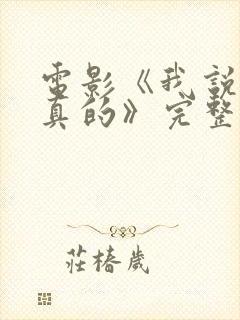 電影《我說
真的》完整
莊椿歲